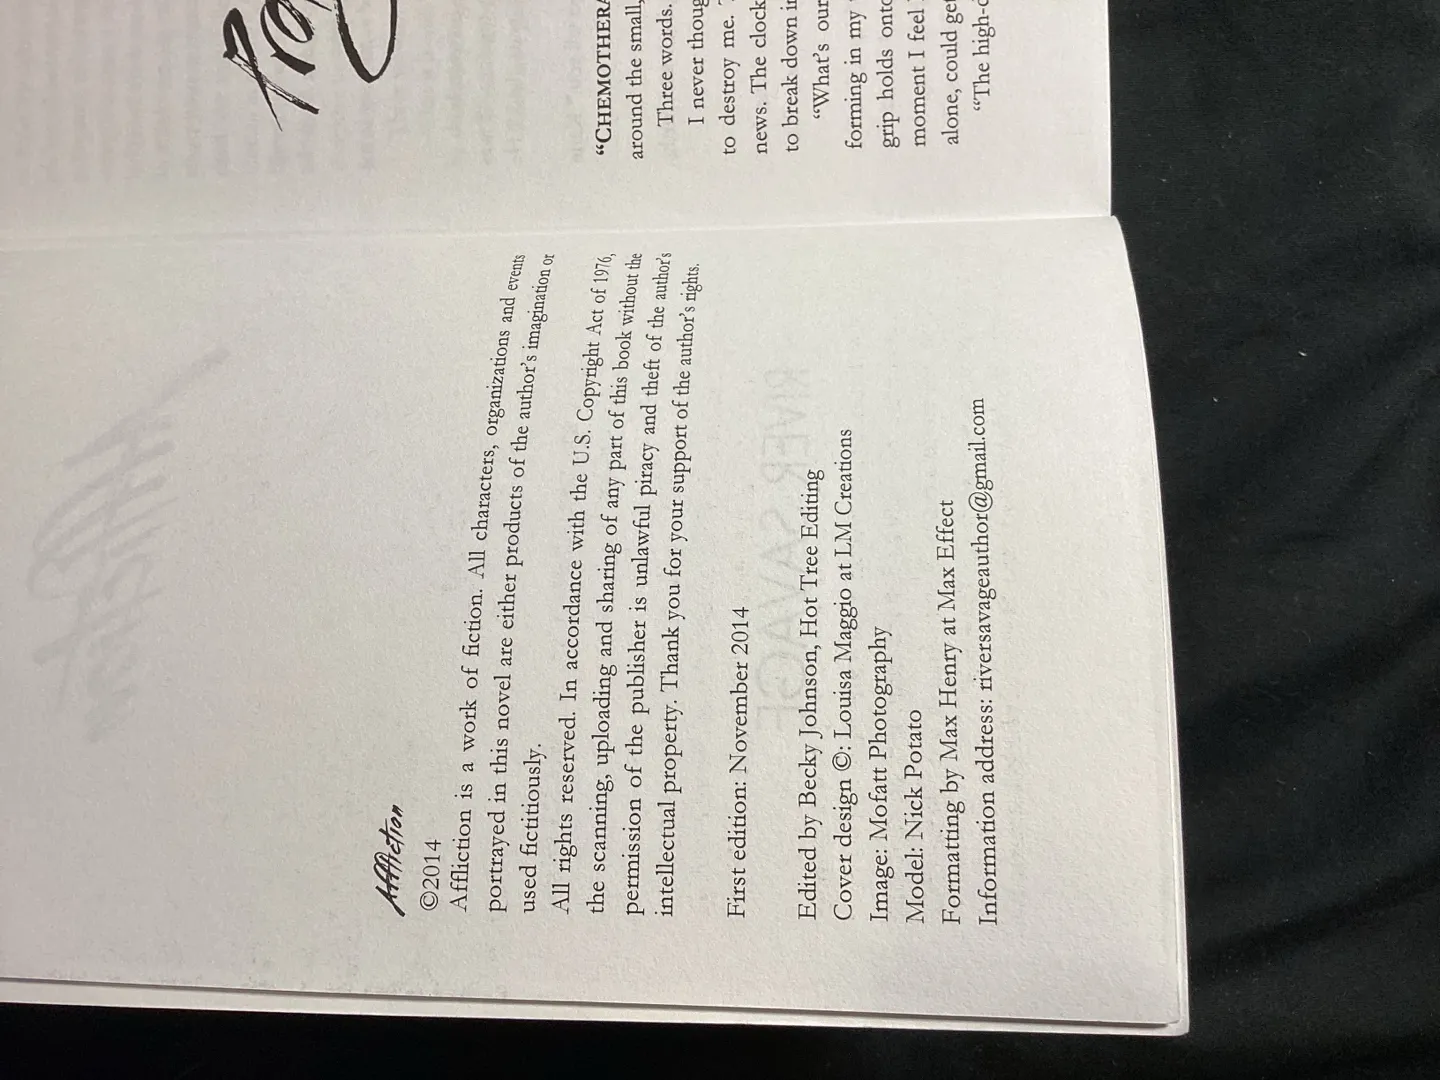 Affliction
©2014
Affliction is a work of fiction. All characters, organizations and events
portrayed in this novel are either products of the author's imagination or
used fictitiously.
All rights reserved. In accordance with the U.S. Copyright Act of 1976,
the scanning, uploading and sharing of any part of this book without the
permission of the publisher is unlawful piracy and theft of the author's
intellectual property. Thank you for your support of the author's rights.
First edition: November 2014
Edited by Becky Johnson, Hot Tree Editing
Cover design ©: Louisa Maggio at LM Creations
Image: Mofatt Photography
Model: Nick Potato
Formatting by Max Henry at Max Effect
Information address: riversavageauthor@gmail.com
RIVER SAVAGE
Affliction
“CHEMOTHERA
around the small,
Three words.
I never thoug
to destroy me.
news. The clock
to break down in
“What's our
forming in my
grip holds onto
moment I feel
alone, could get
“The high-d